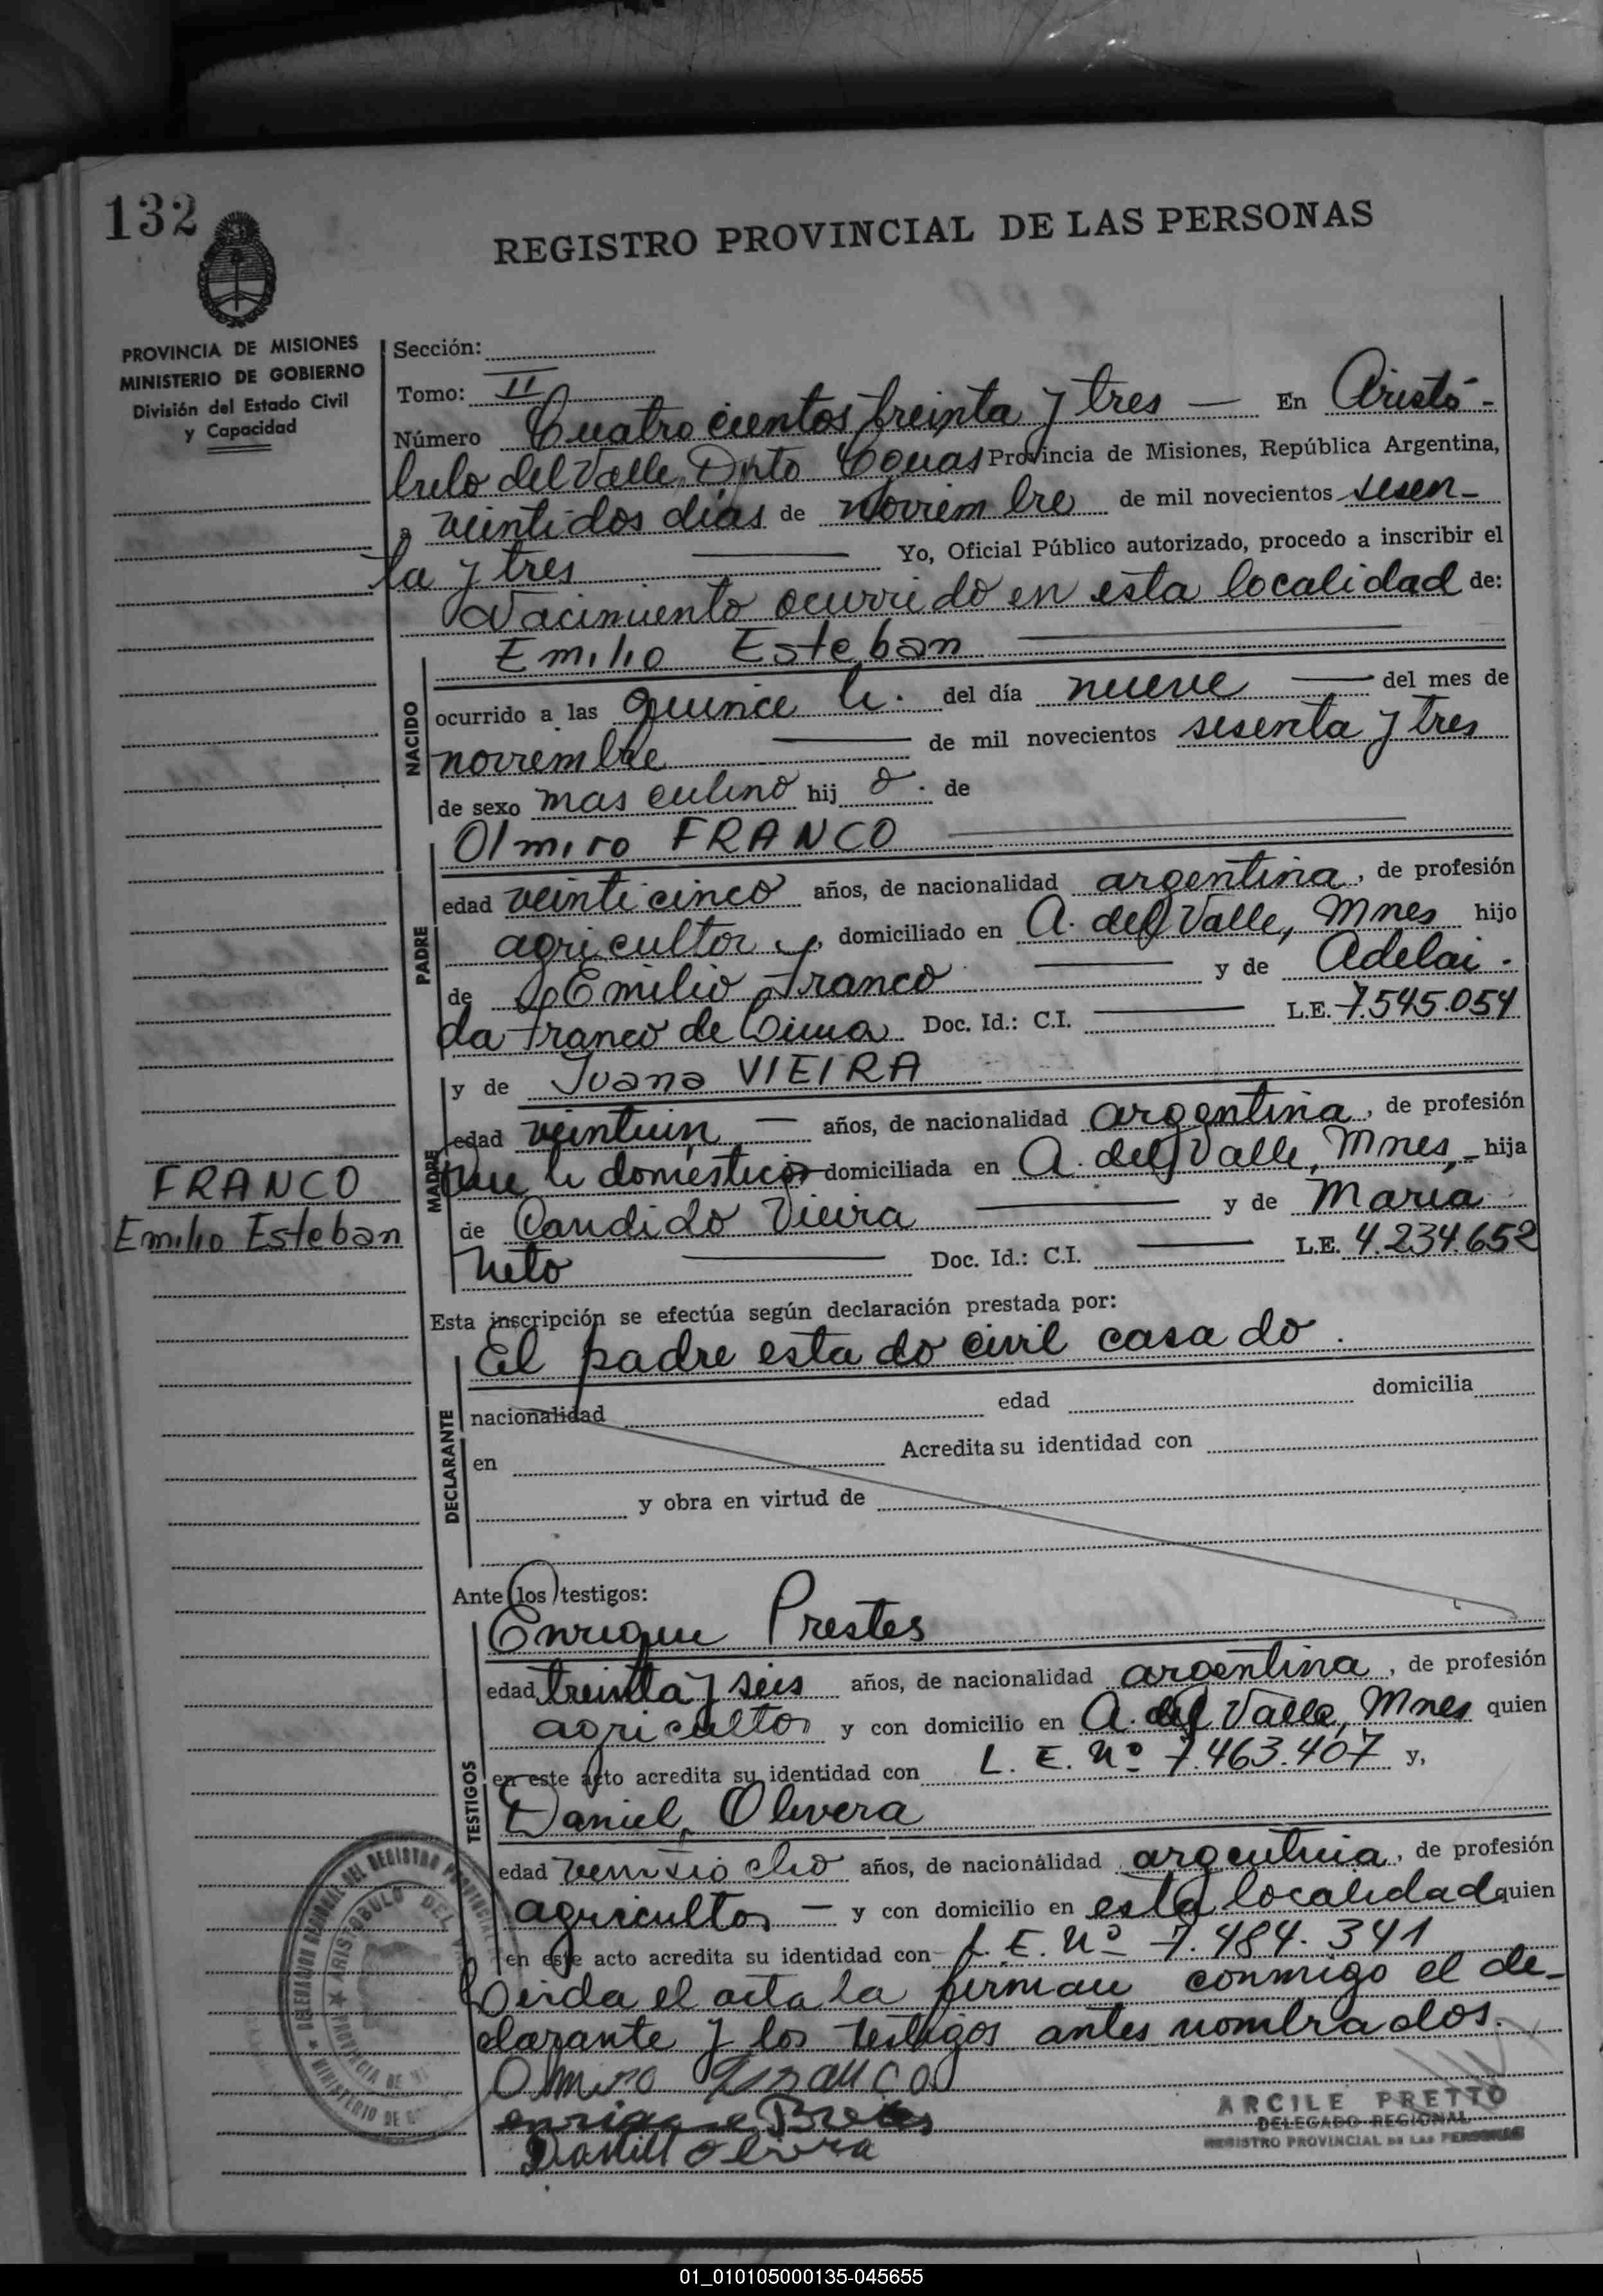 132
REGISTRO PROVINCIAL DE LAS PERSONAS
PROVINCIA DE MISIONES
MINISTERIO DE GOBIERNO
División del Estado Civil
y Capacidad
Sección:
Tomo: II
Número Cuatrocientos treinta y tres — En Aristó-
bulo del Valle, Dpto Provincia de Misiones, República Argentina,
a veintidos días de Noviembre de mil novecientos sesen-
ta y tres Yo, Oficial Público autorizado, procedo a inscribir el
Nacimiento ocurrido en esta localidad de:
Emilio Esteban
NACIDO
ocurrido a las quince h. del día nueve — del mes de
noviembre de mil novecientos sesenta y tres
de sexo masculino hij o. de
Olmiro FRANCO
PADRE
edad veinticinco años, de nacionalidad argentina, de profesión
agricultor, domiciliado en A. del Valle, Mnes hijo
de Emilio Franco y de Adelai-
da Franco de Doc. Id.: C.I. L.E. 7.545.054
y de Juana VIEIRA
MADRE
edad veintiun — años, de nacionalidad argentina, de profesión
que h domésticos domiciliada en A. del Valle, Mnes, hija
de Candido Vieira y de María
Neto Doc. Id.: C.I. L.E. 4.234.652
FRANCO
Emilio Esteban
Esta inscripción se efectúa según declaración prestada por:
El padre estado civil casado.
DECLARANTE
nacionalidad edad domicilia
en Acredita su identidad con
y obra en virtud de
Ante los testigos:
Enrique Prestes
TESTIGOS
edad treinta y seis años, de nacionalidad argentina, de profesión
agricultor y con domicilio en A. del Valle, Mnes quien
en este acto acredita su identidad con L. E. Nº 7.463.407 y,
Daniel Olivera
edad veintiocho años, de nacionalidad argentina, de profesión
agricultor — y con domicilio en esta localidad quien
en este acto acredita su identidad con L. E. Nº 7.484.341
Leida el acta la firman conmigo el de-
clarante y los testigos antes nombrados.
Olmiro Franco
enrique
Daniel olivera
DELEGACION REGIONAL DEL REGISTRO PROVINCIAL
ARISTOBULO DEL
PROVINCIA DE
MINISTERIO DE
ARCILE PRETTO
DELEGADO REGIONAL
REGISTRO PROVINCIAL DE LAS PERSONAS
01_010105000135-045655